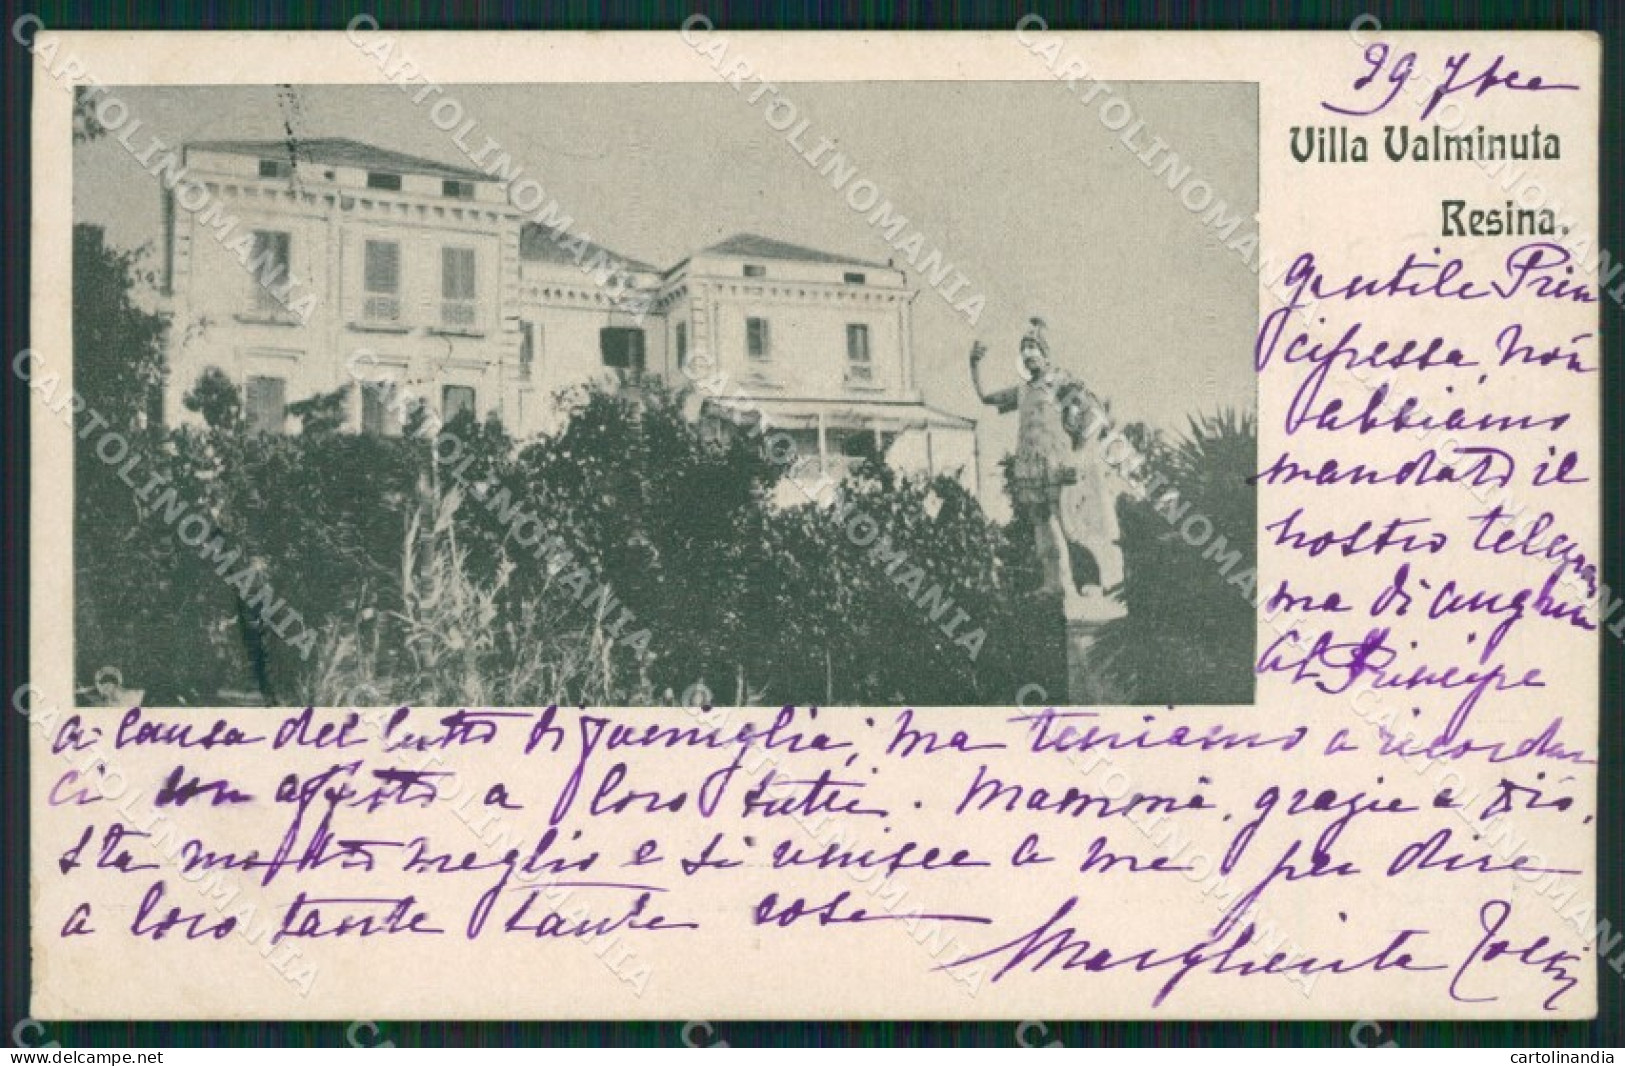 29 7bre
Villa Valminuta
Resina.
Gentile Prin
cipessa, non
abbiamo
mandato il
nostro telegram
ma di auguri
al Principe
a causa del lutto di famiglia; ma teniamo a ricordar
ci con affetto a loro tutti. Mammà, grazie a Dio,
sta molto meglio e si unisce a me per dire
a loro tante tante cose
Margherita
cartolinandia